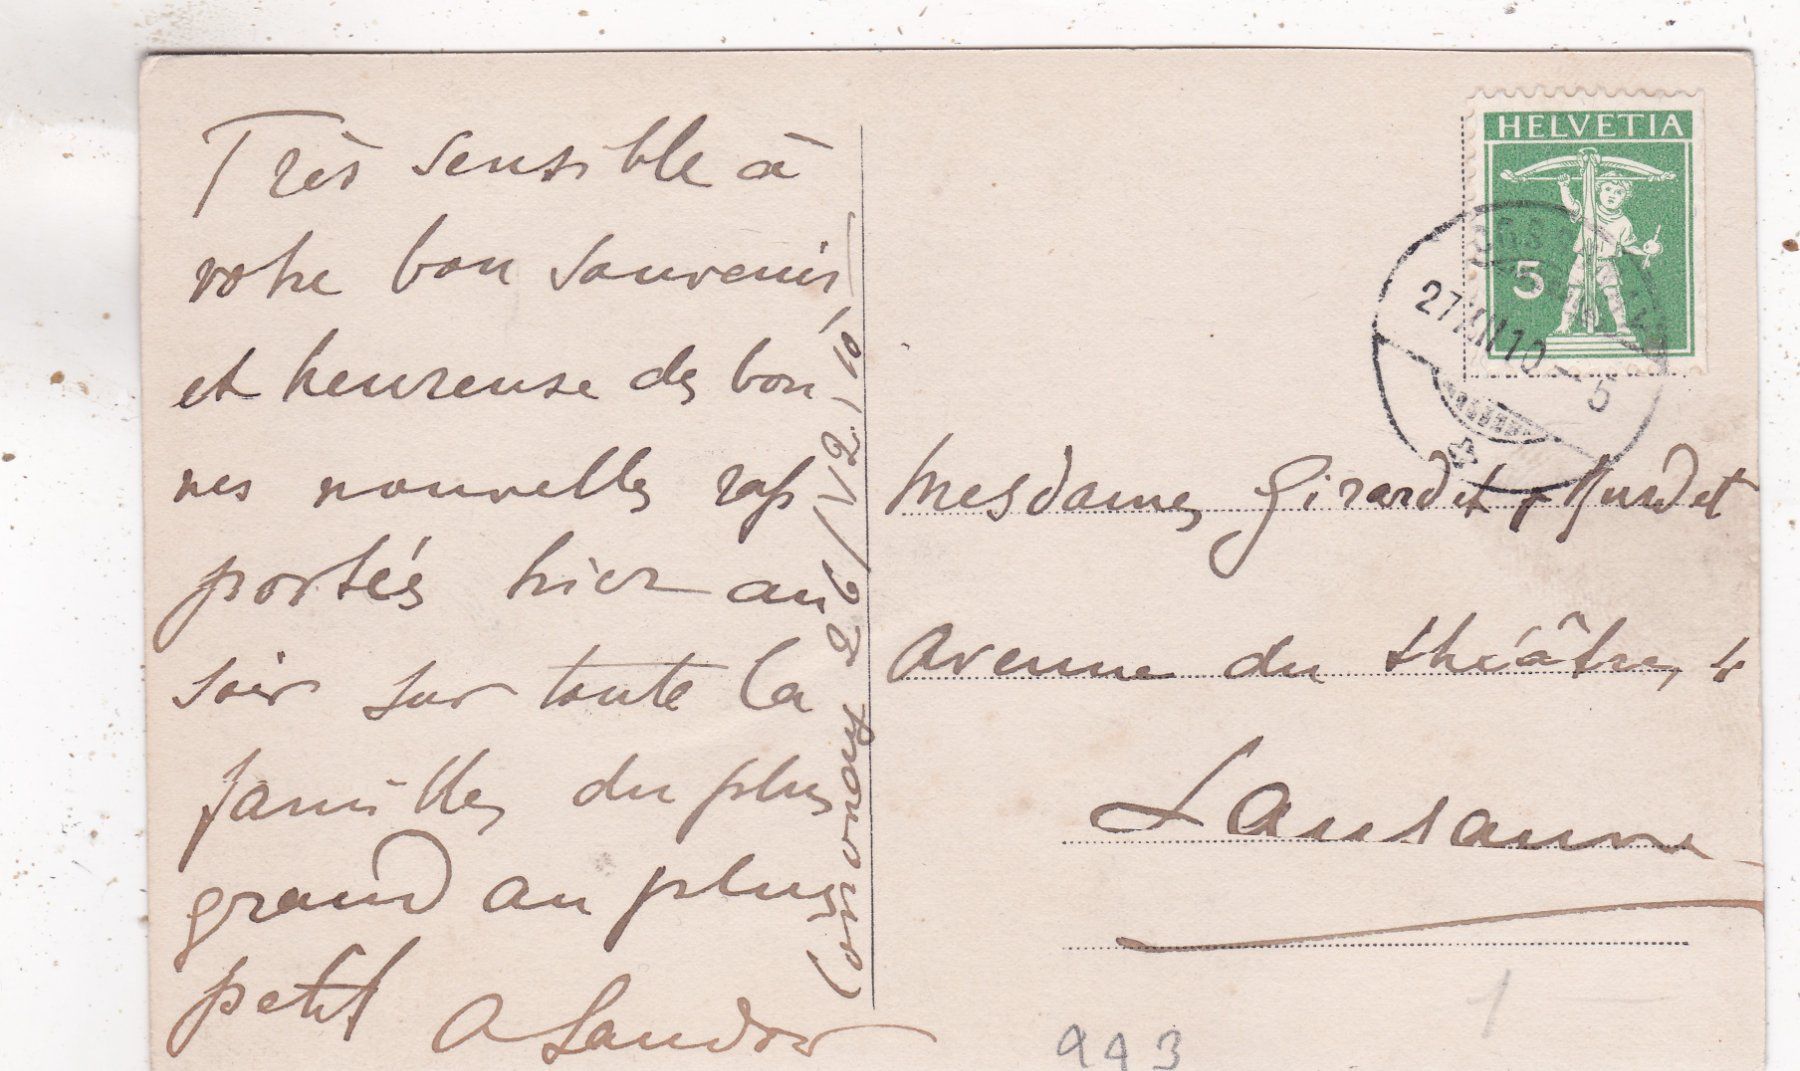 Très sensible à
votre bon souvenir
et heureuse des bon
nes nouvelles rap
portés hier au
soir sur toute la
familles du plus
grand au plus
petit
A Sandoz
26/V2.10.
HELVETIA
5
27 XII 10 - 5
Mesdames Girardet &
Avenue du théâtre, 4
Lausanne
993
1